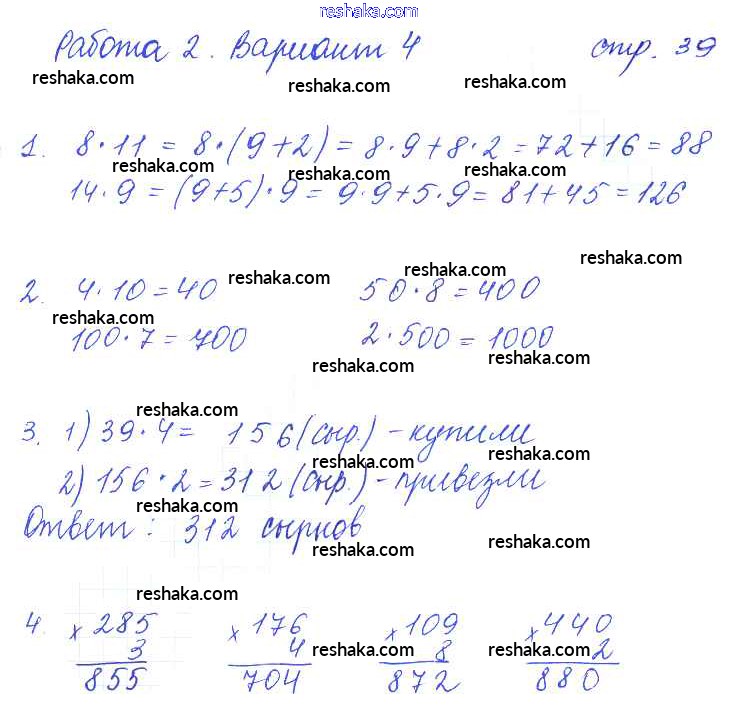 reshaka.com
Работа 2. Вариант 4 стр. 39
reshaka.com reshaka.com reshaka.com
1. 8·11 = 8·(9+2) = 8·9+8·2 = 72+16 = 88
reshaka.com reshaka.com reshaka.com
14·9 = (9+5)·9 = 9·9+5·9 = 81+45 = 126
reshaka.com reshaka.com reshaka.com
2. 4·10 = 40 50·8 = 400
reshaka.com
100·7 = 700 2·500 = 1000
reshaka.com reshaka.com
reshaka.com
3. 1) 39·4 = 156 (сыр.) – купили
reshaka.com reshaka.com
2) 156·2 = 312 (сыр.) – привезли
Ответ: 312 сырков
reshaka.com reshaka.com
reshaka.com
4. × 285 × 176 × 109 × 440
3 4 8 2
reshaka.com reshaka.com
855 704 872 880